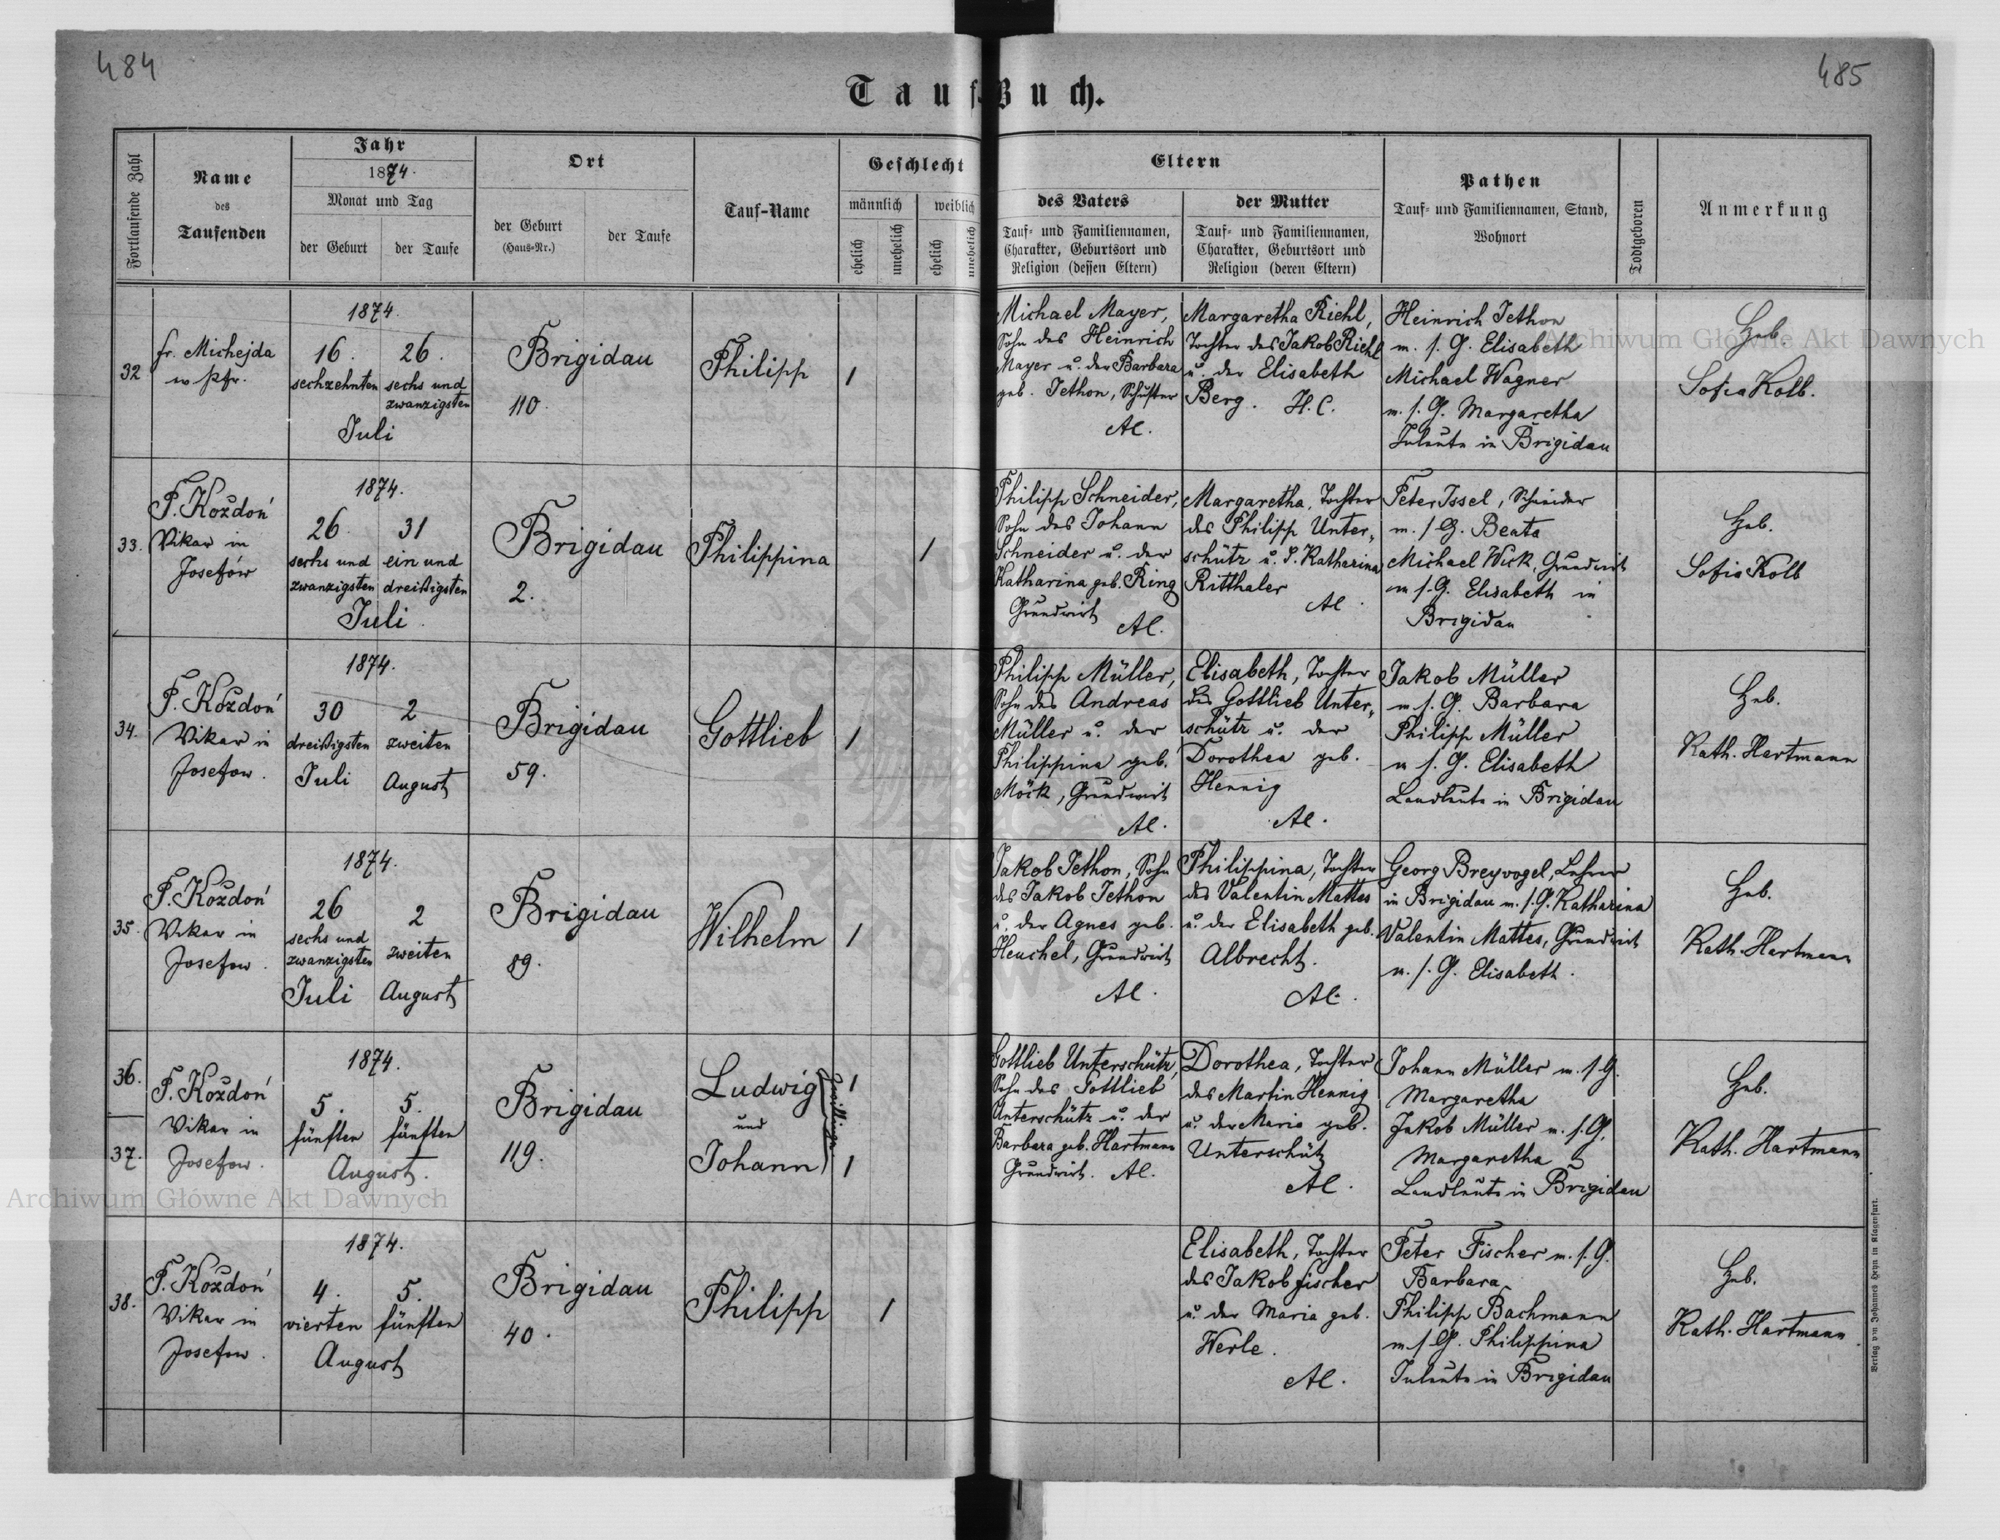 484
485
Tauf-Buch.
Fortlaufende Zahl
Name
des
Taufenden
Jahr
1874.
Monat und Tag
der Geburt
der Taufe
Ort
der Geburt
(Haus-Nr.)
der Taufe
Tauf-Name
Geschlecht
männlich
weiblich
ehelich
unehelich
ehelich
unehelich
Eltern
des Vaters
Tauf- und Familiennamen,
Charakter, Geburtsort und
Religion (dessen Eltern)
der Mutter
Tauf- und Familiennamen,
Charakter, Geburtsort und
Religion (deren Eltern)
Pathen
Tauf- und Familiennamen, Stand,
Wohnort
Todtgeboren
Anmerkung
32
fr. Michejda
w Pfr.
1874.
16.
sechzehnten
26.
sechs und
zwanzigsten
Juli
Brigidau
110.
Philipp
1
Michael Mayer,
Sohn des Heinrich
Mayer u. der Barbara
geb. Jethon, Schuster
AC.
Margaretha Riehl,
Tochter des Jakob Riehl
u. der Elisabeth
Berg. H.C.
Heinrich Jethon
m. s. G. Elisabeth
Michael Wagner
m. s. G. Margaretha
Inleute in Brigidau
Heb.
Sofia Kolb.
33.
F. Kożdoń
Vikar in
Josefów
1874.
26
sechs und
zwanzigsten
31
ein und
dreißigsten
Juli.
Brigidau
2.
Philippina
1
Philipp Schneider,
Sohn des Johann
Schneider u. der
Katharina geb. Ring
Grundwirt
AC.
Margaretha, Tochter
des Philipp Unter-
schütz u. d. Katharina
Ritthaler
AC.
Peter Issel, Schneider
m. s. G. Beata
Michael Wick, Grundwirt
m s. G. Elisabeth in
Brigidau
Heb.
Sofia Kolb
34.
F. Kożdoń
Vikar in
Josefow.
1874.
30
dreißigsten
Juli
2
zweiten
August
Brigidau
59.
Gottlieb
1
Philipp Müller,
Sohn des Andreas
Müller u. der
Philippina geb.
Möck, Grundwirt
AC.
Elisabeth, Tochter
des Gottlieb Unter-
schütz u. der
Dorothea geb.
Hennig
AC.
Jakob Müller
m s. G. Barbara
Philipp Müller
m s. G. Elisabeth
Landleute in Brigidau
Heb.
Kath. Hartmann
35.
F. Kożdoń
Vikar in
Josefow.
1874.
26
sechs und
zwanzigsten
Juli
2
zweiten
August
Brigidau
89.
Wilhelm
1
Jakob Jethon, Sohn
des Jakob Jethon
u. der Agnes geb.
Heuchel, Grundwirt
AC.
Philippina, Tochter
des Valentin Mattes
u. der Elisabeth geb.
Albrecht.
AC.
Georg Breyvogel, Lehrer
in Brigidau m. s. G. Katharina
Valentin Mattes, Grundwirt
m. s. G. Elisabeth.
Heb.
Kath. Hartmann
36.
37.
F. Kożdoń
Vikar in
Josefow.
1874.
5.
fünften
5.
fünften
August.
Brigidau
119.
Ludwig
und
Johann
Zwillinge
1
1
Gottlieb Unterschütz,
Sohn des Gottlieb
Unterschütz u. der
Barbara geb. Hartmann
Grundwirt. AC.
Dorothea, Tochter
des Martin Hennig
u. der Maria geb.
Unterschütz
AC.
Johann Müller m. s G.
Margaretha
Jakob Müller m. s. G.
Margaretha
Landleute in Brigidau
Heb.
Kath. Hartmann
38.
F. Kożdoń
Vikar in
Josefow.
1874.
4.
vierten
5.
fünften
August
Brigidau
40.
Philipp
1
Elisabeth, Tochter
des Jakob Fischer
u. der Maria geb.
Werle.
AC.
Peter Fischer m. s. G.
Barbara
Philipp Bachmann
m s G. Philippina
Inleute in Brigidau
Heb.
Kath. Hartmann
Verlag von Johannes Heyn in Klagenfurt.
Archiwum Główne Akt Dawnych
Archiwum Główne Akt Dawnych